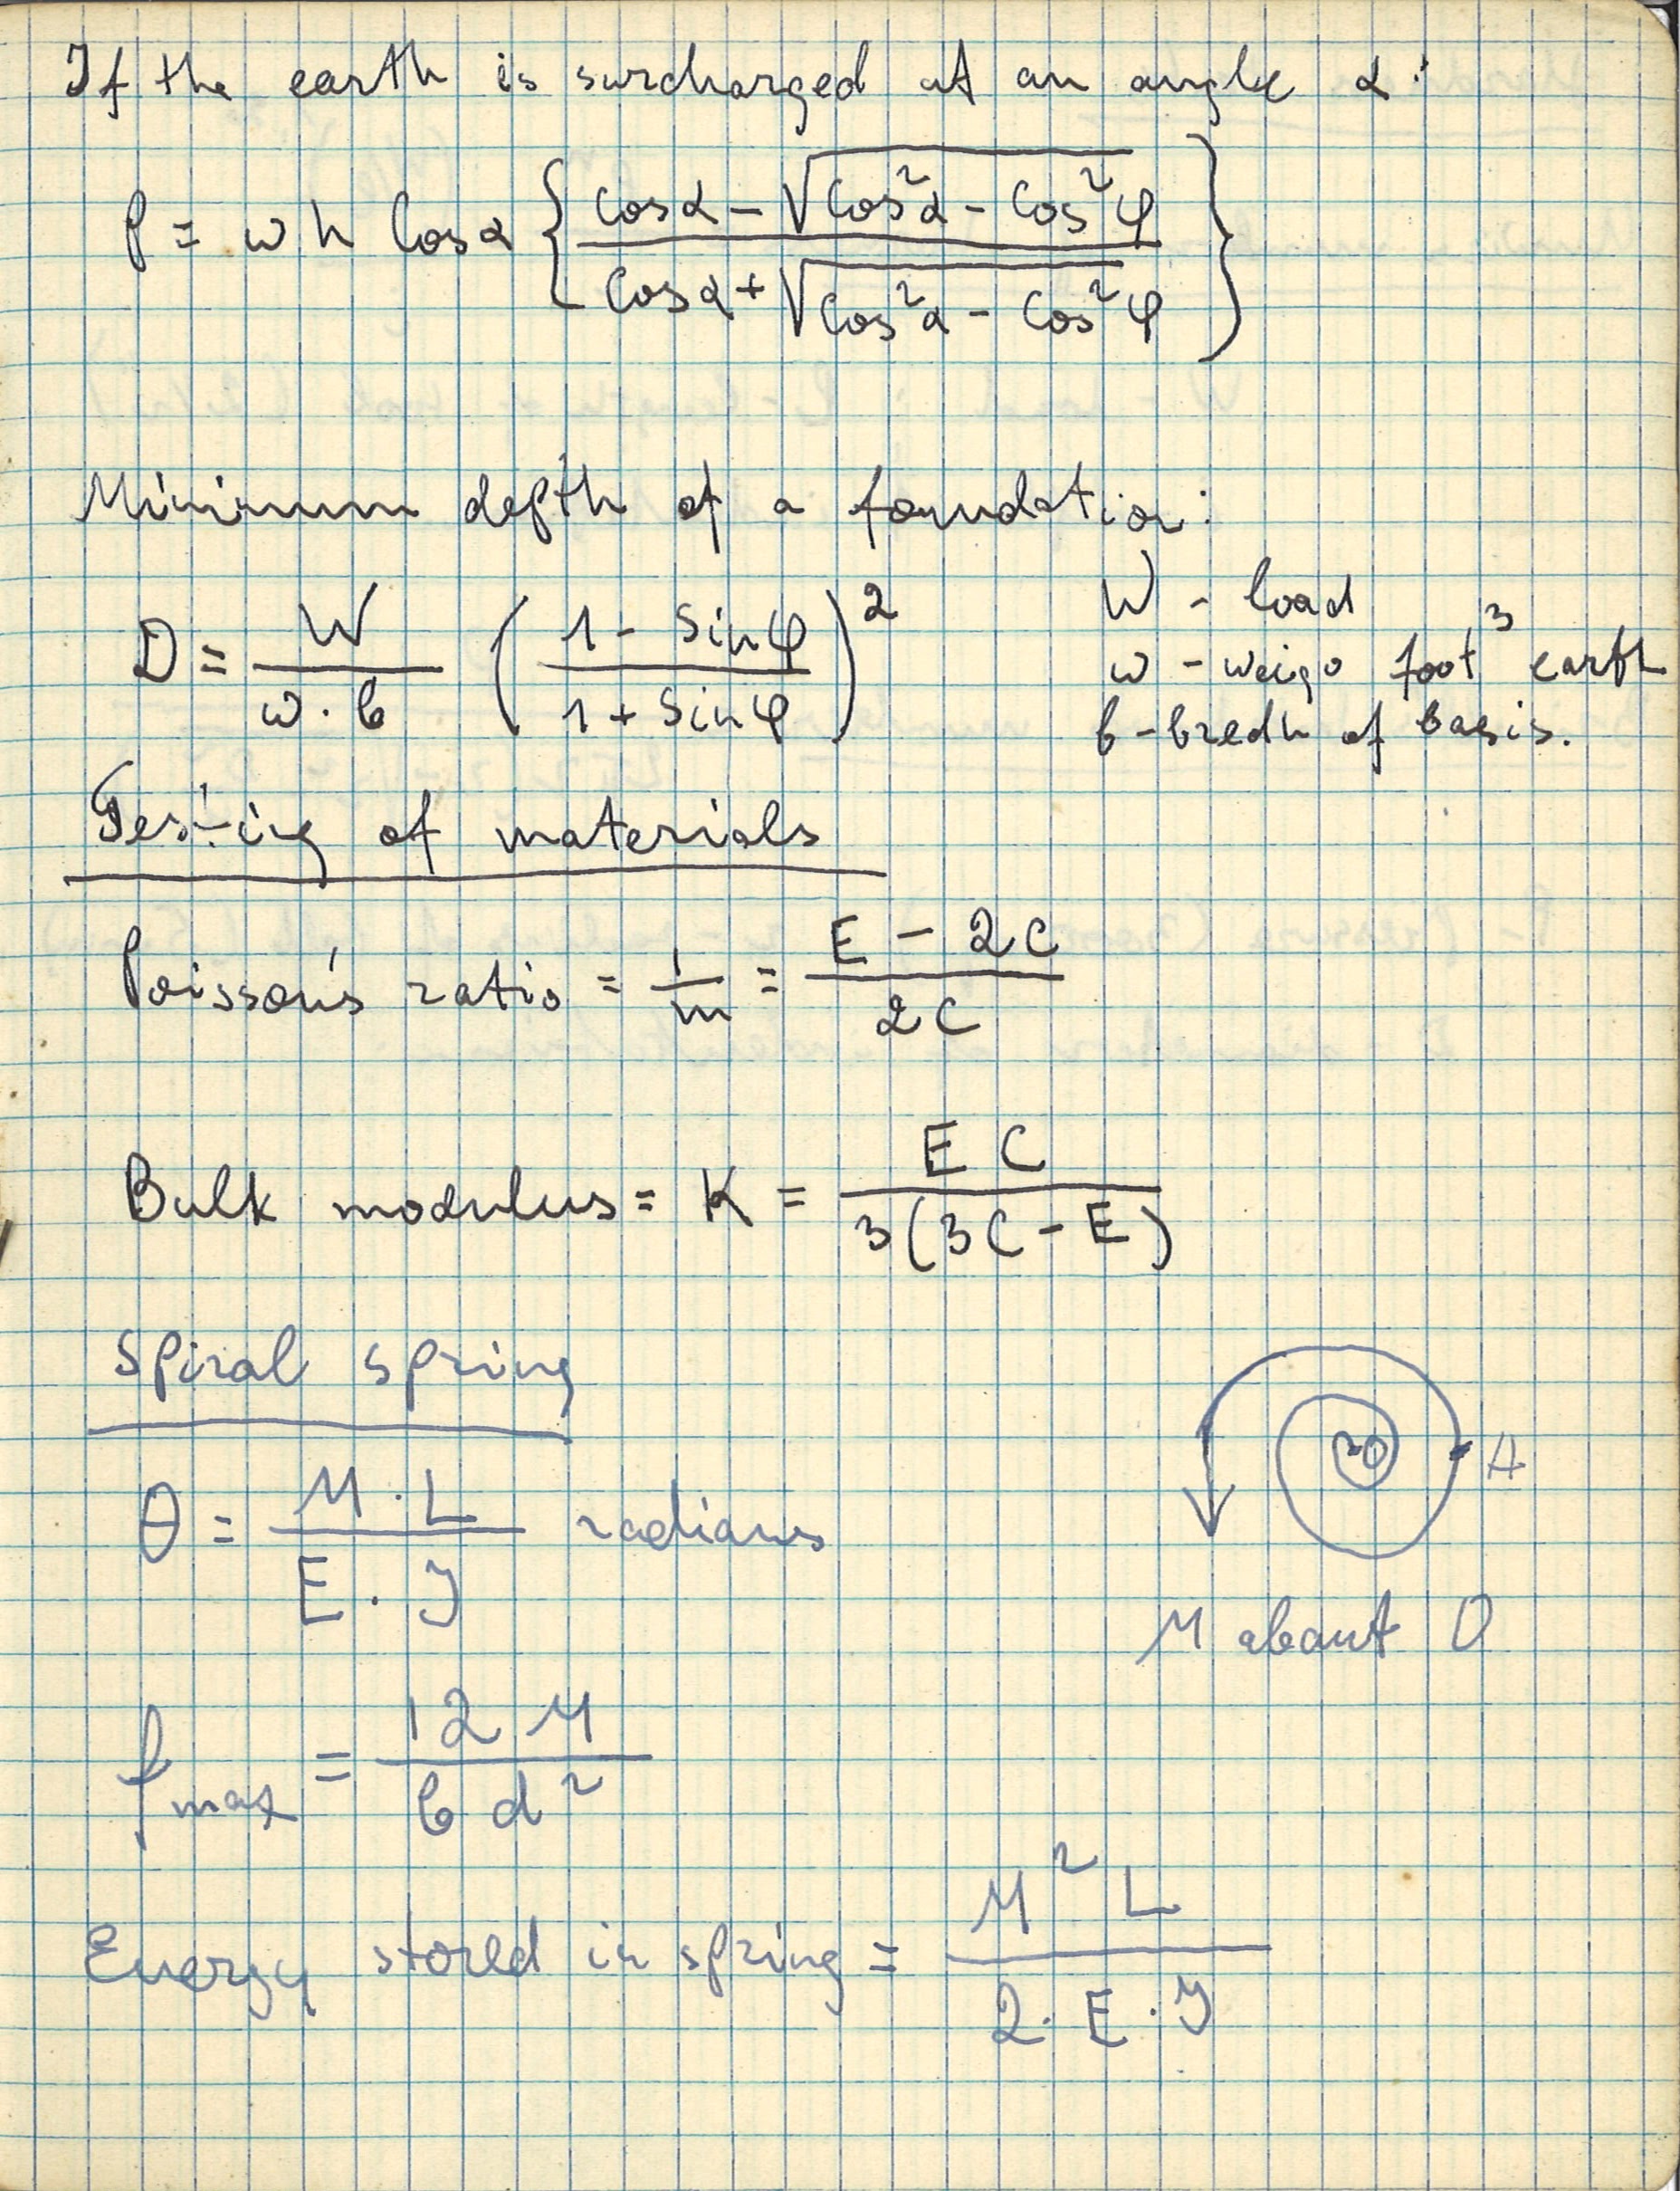 If the earth is surcharged at an angle α:
p = w h cos α { (cos α - √(cos²α - cos²φ)) / (cos α + √(cos²α - cos²φ)) }
Minimum depth of a foundation:
D = W / (w · b) ((1 - sin φ) / (1 + sin φ))²
W - load
w - weigo foot³ earth
b - bredh of basis.
Testing of materials
Poisson's ratio = 1/m = (E - 2C) / 2C
Bulk modulus = K = E C / 3(3C - E)
Spiral spring
θ = M · L / E · J radians
O A
M about O
f max = 12 M / b d²
Energy stored in spring = M² L / 2 · E · J